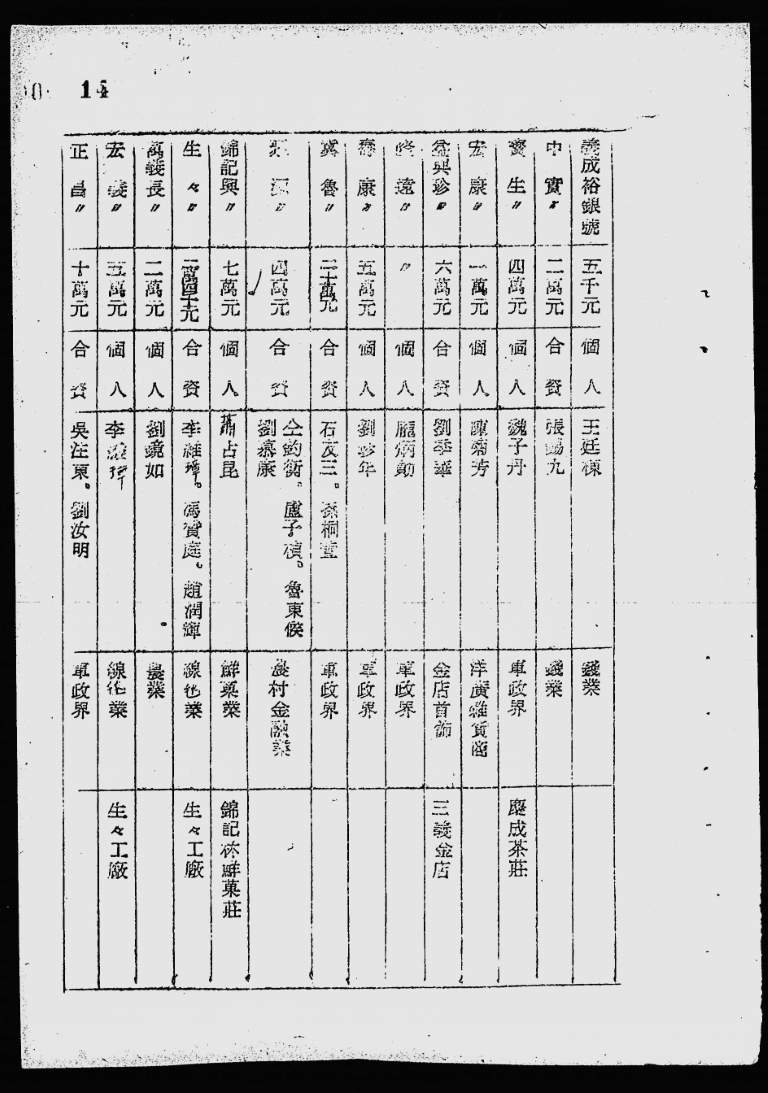 14
義成裕銀號 五千元 個人 王廷棟 錢業
中實〃 二萬元 合資 張錫九 錢業
寶生〃 四萬元 個人 魏子丹 軍政界 慶成茶莊
宏康〃 一萬元 個人 陳菊芳 洋廣雜貨商
益興珍〃 六萬元 合資 劉季華 金店首飾 三義金店
〃 〃 個人 龐炳勳 軍政界
壽康〃 五萬元 個人 劉珍年 軍政界
冀魯〃 二十萬元 合資 石友三。孫桐萱 軍政界
〃 四萬元 合資 仝鈞衡。盧子楨。魯東候 劉慕康 農村金融業
錦記興〃 七萬元 個人 占昆 鮮菓業 錦記棧鮮菓莊
生々〃 合資 李維璋。馮賓庭。趙潤輝 線毯業 生々工廠
萬義長〃 二萬元 個人 劉鏡如 農業
宏義〃 五萬元 個人 李維璋 線毯業 生々工廠
正昌〃 十萬元 合資 吳汪東。劉汝明 軍政界